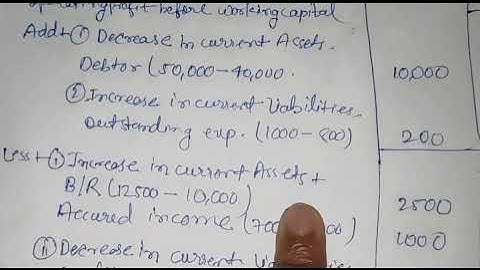 operating profit before working capital
Add+ ① Decrease in current Assets.
Debtor (50,000-40,000. 10,000
② Increase in current Liabilities.
Outstanding exp. (1000-800) 200
Less+ ① Increase in current Assets+
B/R (12500-10,000) 2500
Accured income (700 00) 1000
⑪ Decrease in current